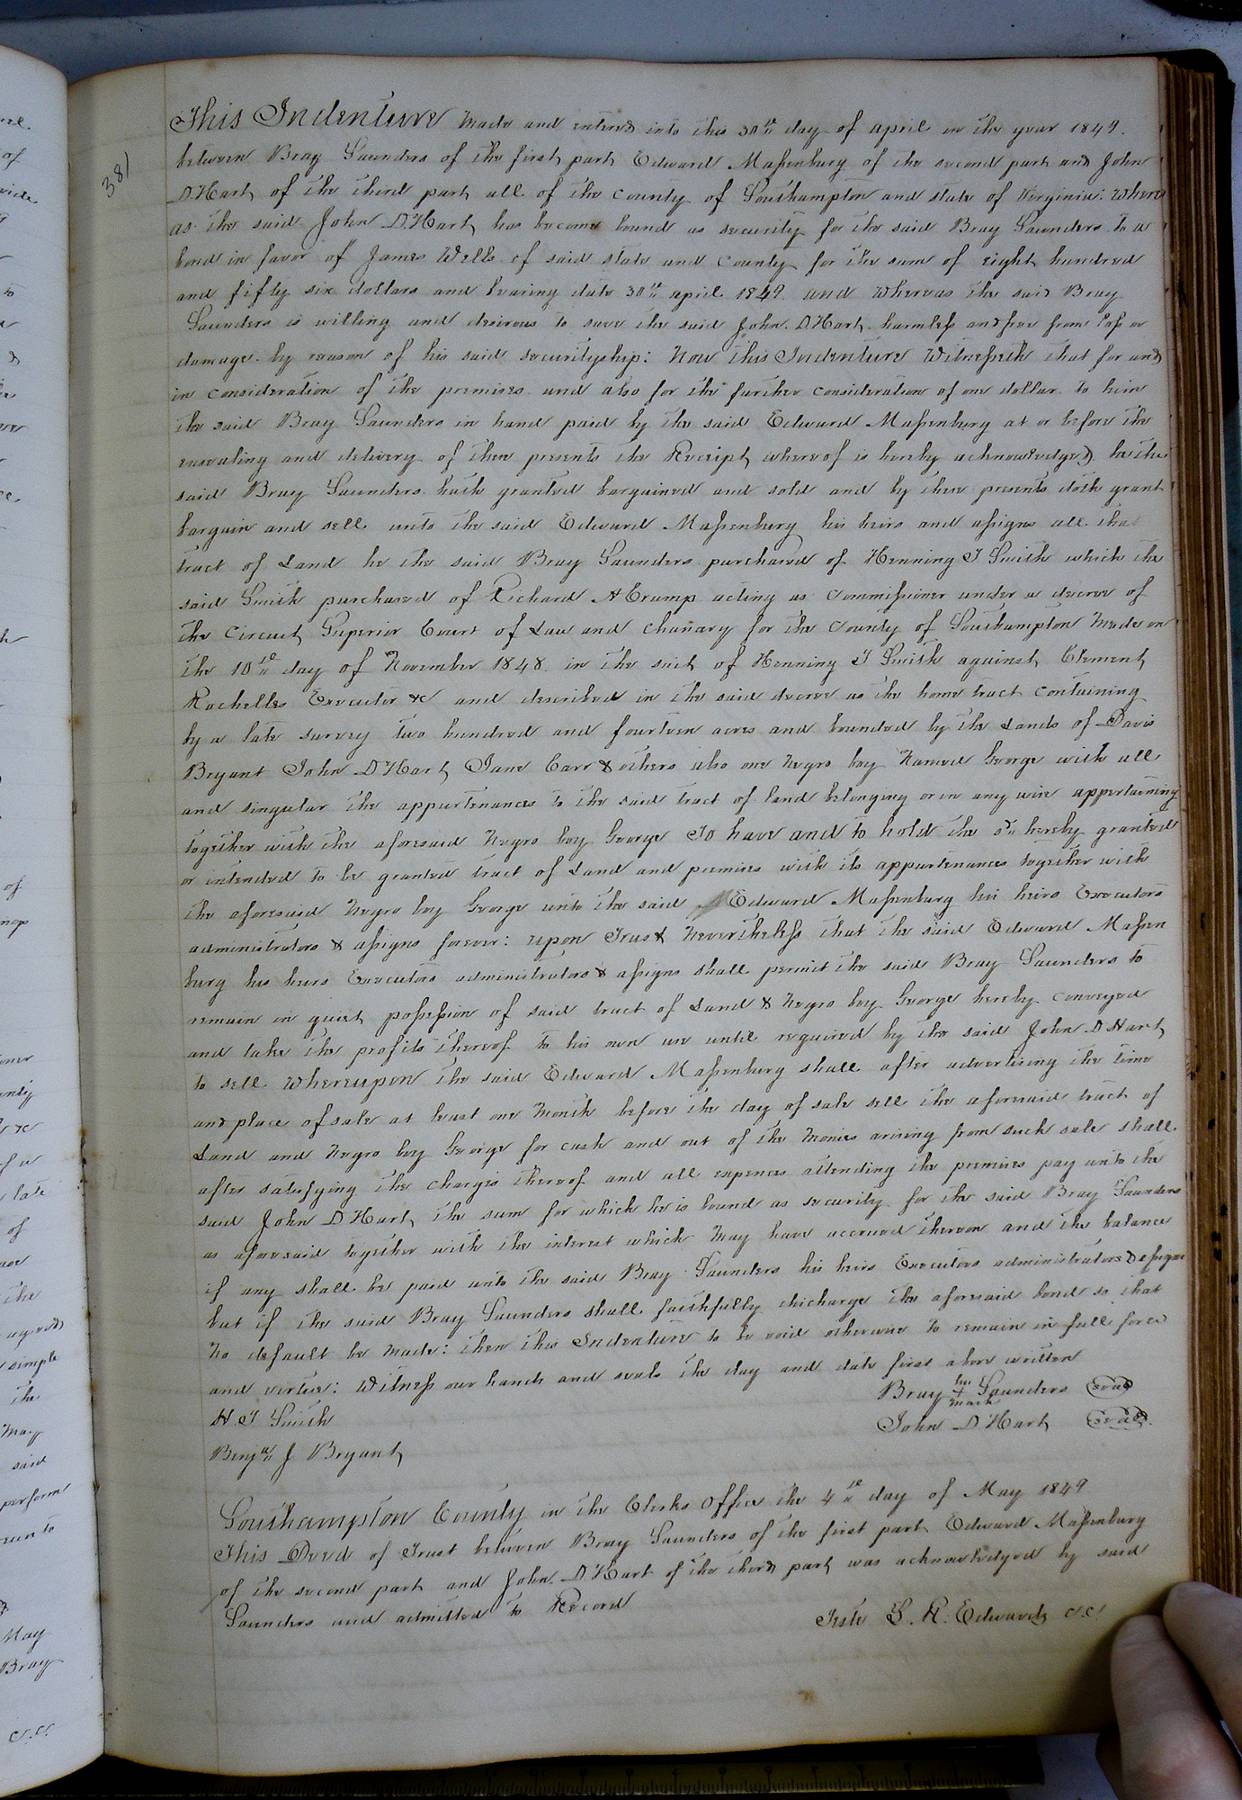 381
This Indenture made and entered into this 30th day of april in the year 1849.
between Bray Saunders of the first part Edward Massenburg of the second part and John
D. Hart of the third part all of the County of Southampton and state of Virginia: Where
as the said John D. Hart has become bound as security for the said Bray Saunders to a
bond in favor of James Wells of said state and County for the sum of eight hundred
and fifty six dollars and bearing date 30th april 1849 and whereas the said Bray
Saunders is willing and desirous to save the said John. D. Hart harmless and free from loss or
damage by reason of his said securityship: Now this Indenture Witnesseth that for and
in consideration of the premises and also for the further consideration of one dollar to him
the said Bray Saunders in hand paid by the said Edward Massenburg at or before the
ensealing and delivery of these presents the Receipt whereof is hereby acknowledged he the
said Bray Saunders hath granted bargained and sold and by these presents doth grant
bargain and sell unto the said Edward Massenburg his heirs and assigns all that
tract of Land he the said Bray Saunders purchased of Henning T Smith which the
said Smith purchased of Richard A Crump acting as Commissioner under a decree of
the Circuit Superior Court of Law and Chancery for the County of Southampton made on
the 10th day of November 1848 in the suit of Henning T Smith against Clement
Rochelles Executor &c and described in the said decree as the home tract containing
by a late survey two hundred and fourteen acres and bounded by the Lands of Davis
Bryant John D Hart Jane Carr & others also one Negro boy Named George with all
and singular the appurtenances to the said tract of land belonging or in any wise appertaining
together with the aforesaid Negro boy George To have and to hold the sd. hereby granted
or intended to be granted tract of Land and premises with its appurtenances together with
the aforesaid Negro boy George unto the said Edward Massenburg his heirs Executors
administrators & assigns forever: upon Trust Nevertheless that the said Edward Massen
burg his heirs Executors administrators & assigns shall permit the said Bray Saunders to
remain in quiet possession of said tract of Land & Negro boy George hereby conveyed
and take the profits thereof to his own use until required by the said John D Hart
to sell whereupon the said Edward Massenburg shall after advertising the time
and place of sale at least one Month before the day of sale sell the aforesaid tract of
Land and Negro boy George for cash and out of the Monies arising from such sale shall
after satisfying the charges thereof and all expences attending the premises pay unto the
said John D Hart the sum for which he is bound as security for the said Bray Saunders
as aforesaid together with the interest which May have accrued thereon and the balance
if any shall be paid unto the said Bray Saunders his heirs Executors administrators & assigns
but if the said Bray Saunders shall faithfully discharge the aforesaid bond so that
No default be made: then this Indenture to be void otherwise to remain in full force
and virtue: Witness our hands and seals the day and date first above written
H T Smith
Benjn J Bryant
Bray his + mark Saunders seal
John D Hart seal
Southampton County in the Clerks Office the 4th day of May 1849
This Deed of Trust between Bray Saunders of the first part Edward Massenburg
of the second part and John. D. Hart of the third part was acknowledged by said
Saunders and admitted to Record
Teste L. R. Edwards C.C.